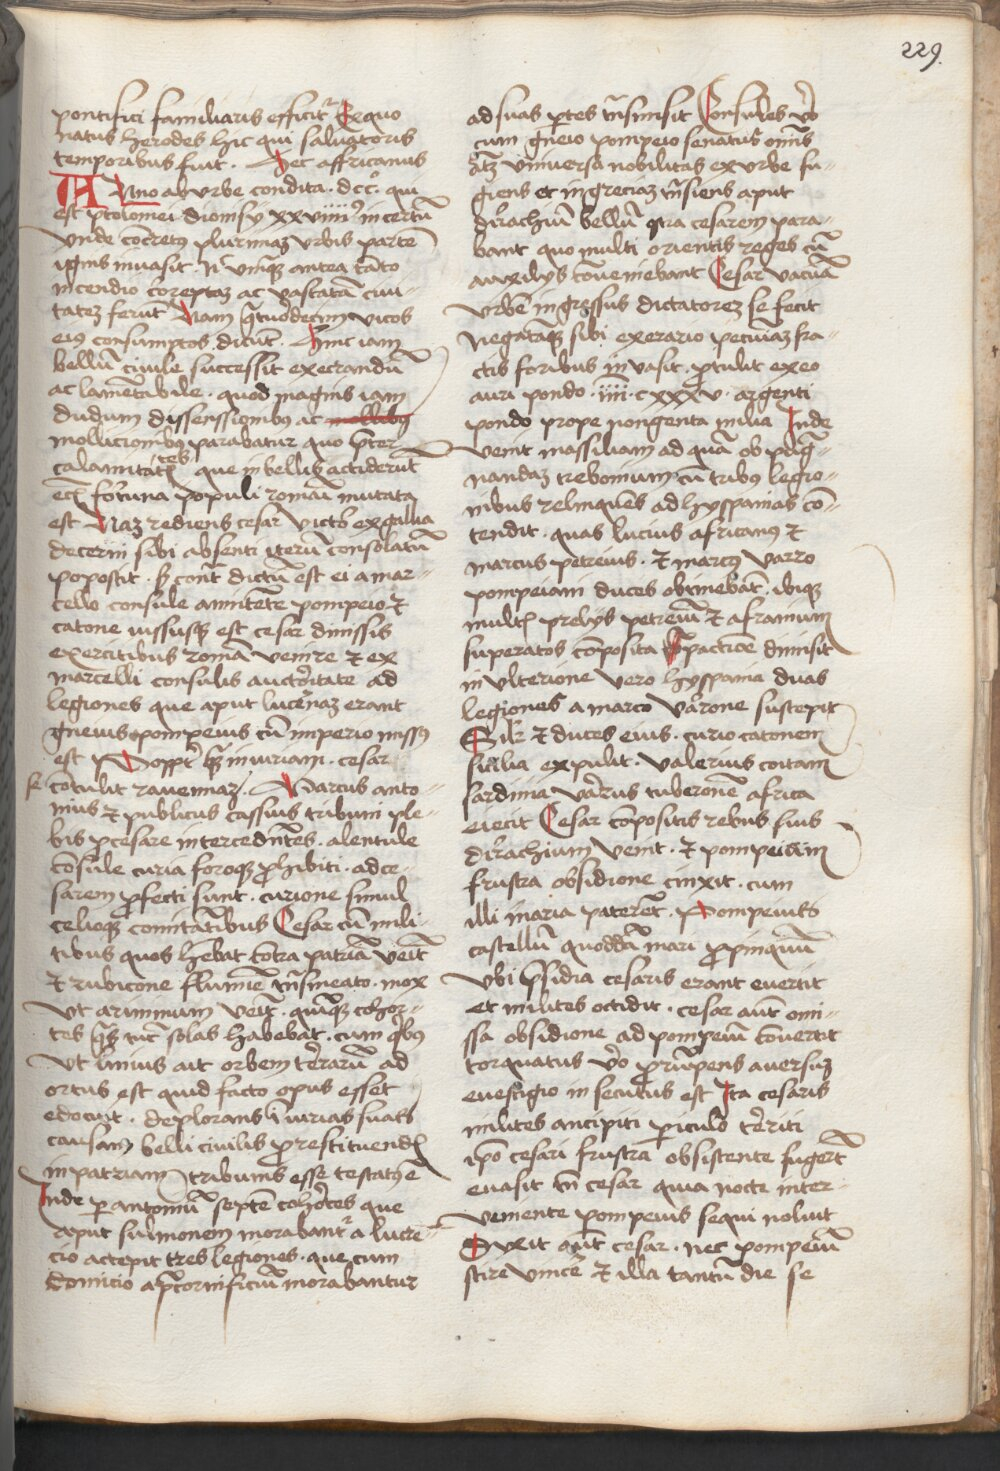 229.
pontifici familiaris efficitᷣ Ex quo
natus herodes hic qui saluatoris
temporibus fuit . Hec affricanus
ANno ab vrbe condita . dccͦ. qui
est ptolomei dionisij xxviiijᷣ incertū
vnde cōcretꝰ plurimaȝ vrbis partē
ignis inuasit . Nͭ vnꝙ antea tāto
incendio coreptaȝ ac vastatā ciui-
tateȝ ferūt Nam qͣtuordecim vicos
eiꝰ consumptos dicūt . Hinc iam
bellū ciuile successit execrandū
ac lamētabile . quod magnis iam
dudum dissenssionibꝰ ac
molucionibꝰ parabatur quo p̄ter
calamitatestes que in bellis actiderūt
ecī fortuna populi romāi mutata
est Naȝ rediens cesar victor ex gallia
decerni sibi absenti iterū consolatū
poposcit . sȝ cont̄ dictū est ei a mar-
cello consule annitēte pompeio ⁊
catone iussusqȝ est cesar dimissis
exercitibus romā venire ⁊ ex
marcelli consulis auctoritate ad
legiones que aput lucerīaȝ erant
gneus pompeius cū imperio missꝰ
est Proppt̄ qȝ iniuriam . cesar
se cōtulit rauennaȝ . Marcus anto-
nius ⁊ publicus cassius tribuni ple-
bis p cesare intercedn̄tes . a lentule
cōsule curia foroqȝ ꝓhibiti . ad ce-
sarem ꝓfecti sunt . curione simul
celioqȝ comitātibus Cesar cū mili
tibus quos hēbat cōtra patriā veīt
⁊ rubicone flumīe tn̄smeato . mox
vt ariminum veīt . quinqȝ cohor-
tes qͣs tūc solas habebāt . cum qͥbꝰ
vt liuius ait orbem terrarū ad
ortus est quid facto opus esset
edocuit . deplorans iniurias suas
causam belli ciuilis ꝓ restituendis
in patriam tribunis esse testatꝰ ē
Inde ꝑ antoniū septē cohortes que
aput sulmonem morabantᷣ a lucre-
cio accepit tres legiones . que cum
domicio ap̄ cornificiū morabantur
ad suas ꝑtes tn̄smisit Consules vͦ
cum gneio pompeio senatusqꝫ omīs
atqȝ vniuersa nobilitas ex vrbe fu-
giens et in greciaȝ tn̄siens aput
dirachiū bellū ꝯtra cesarem para-
bant quo multi orientis reges cū
auxilijs cōueniebant Cesar vacuā
vrbē ingressus dictatoreȝ se fecit
negatāqȝ sibi ex erario pecuniaȝ fra-
ctis foribus inuasit . ꝓtulit ex eo
auri pondo . iiii . cxxxv . argenti
pondo prope nongenta milia Inde
venit massiliam ad quā ob pūg-
nandaȝ trebonium cū tribus legio-
nibus relinquēs ad hyspanias cō-
tendit . quas lucius africanus ⁊
marcus petreius . ⁊ marcus varro
pompeiani duces obtinebāt . ibiqȝ
multis prelijs petreiū ⁊ afranium
superatos cōposita pactiōe dimisit
in vlteriore vero hyspania duas
legiones a marco varrone suscepit
Silr ⁊ duces eius . curio catonem
sicilia expulit . valerius cottam
sardinia varus tuberonē africa
eiecit Cesar cōpositis rebus suis
dirachium venit . ⁊ pompeium
frustra obsidione cinxit . cum
illi maria paterēt . Pompeius
castellū quoddā mari ꝓpinquū
vbi p̄sidia cesaris erant euertit
et milites occidit . cesar aūt omi-
ssa obsidione ad pompeiū cōuertit
torquatus vͦo ꝓrūpens auersuȝ
e uestigio in secutus est Ita cesaris
milites ancipiti ꝑiculo territi
ipo cesari frustra obsistente fugerūt
euasit tn̄ cesar quia nocte inter-
veniente pompeius sequi noluit
Dixit aūt cesar . nec pompeiū
scire vincē ⁊ illa tantū die se